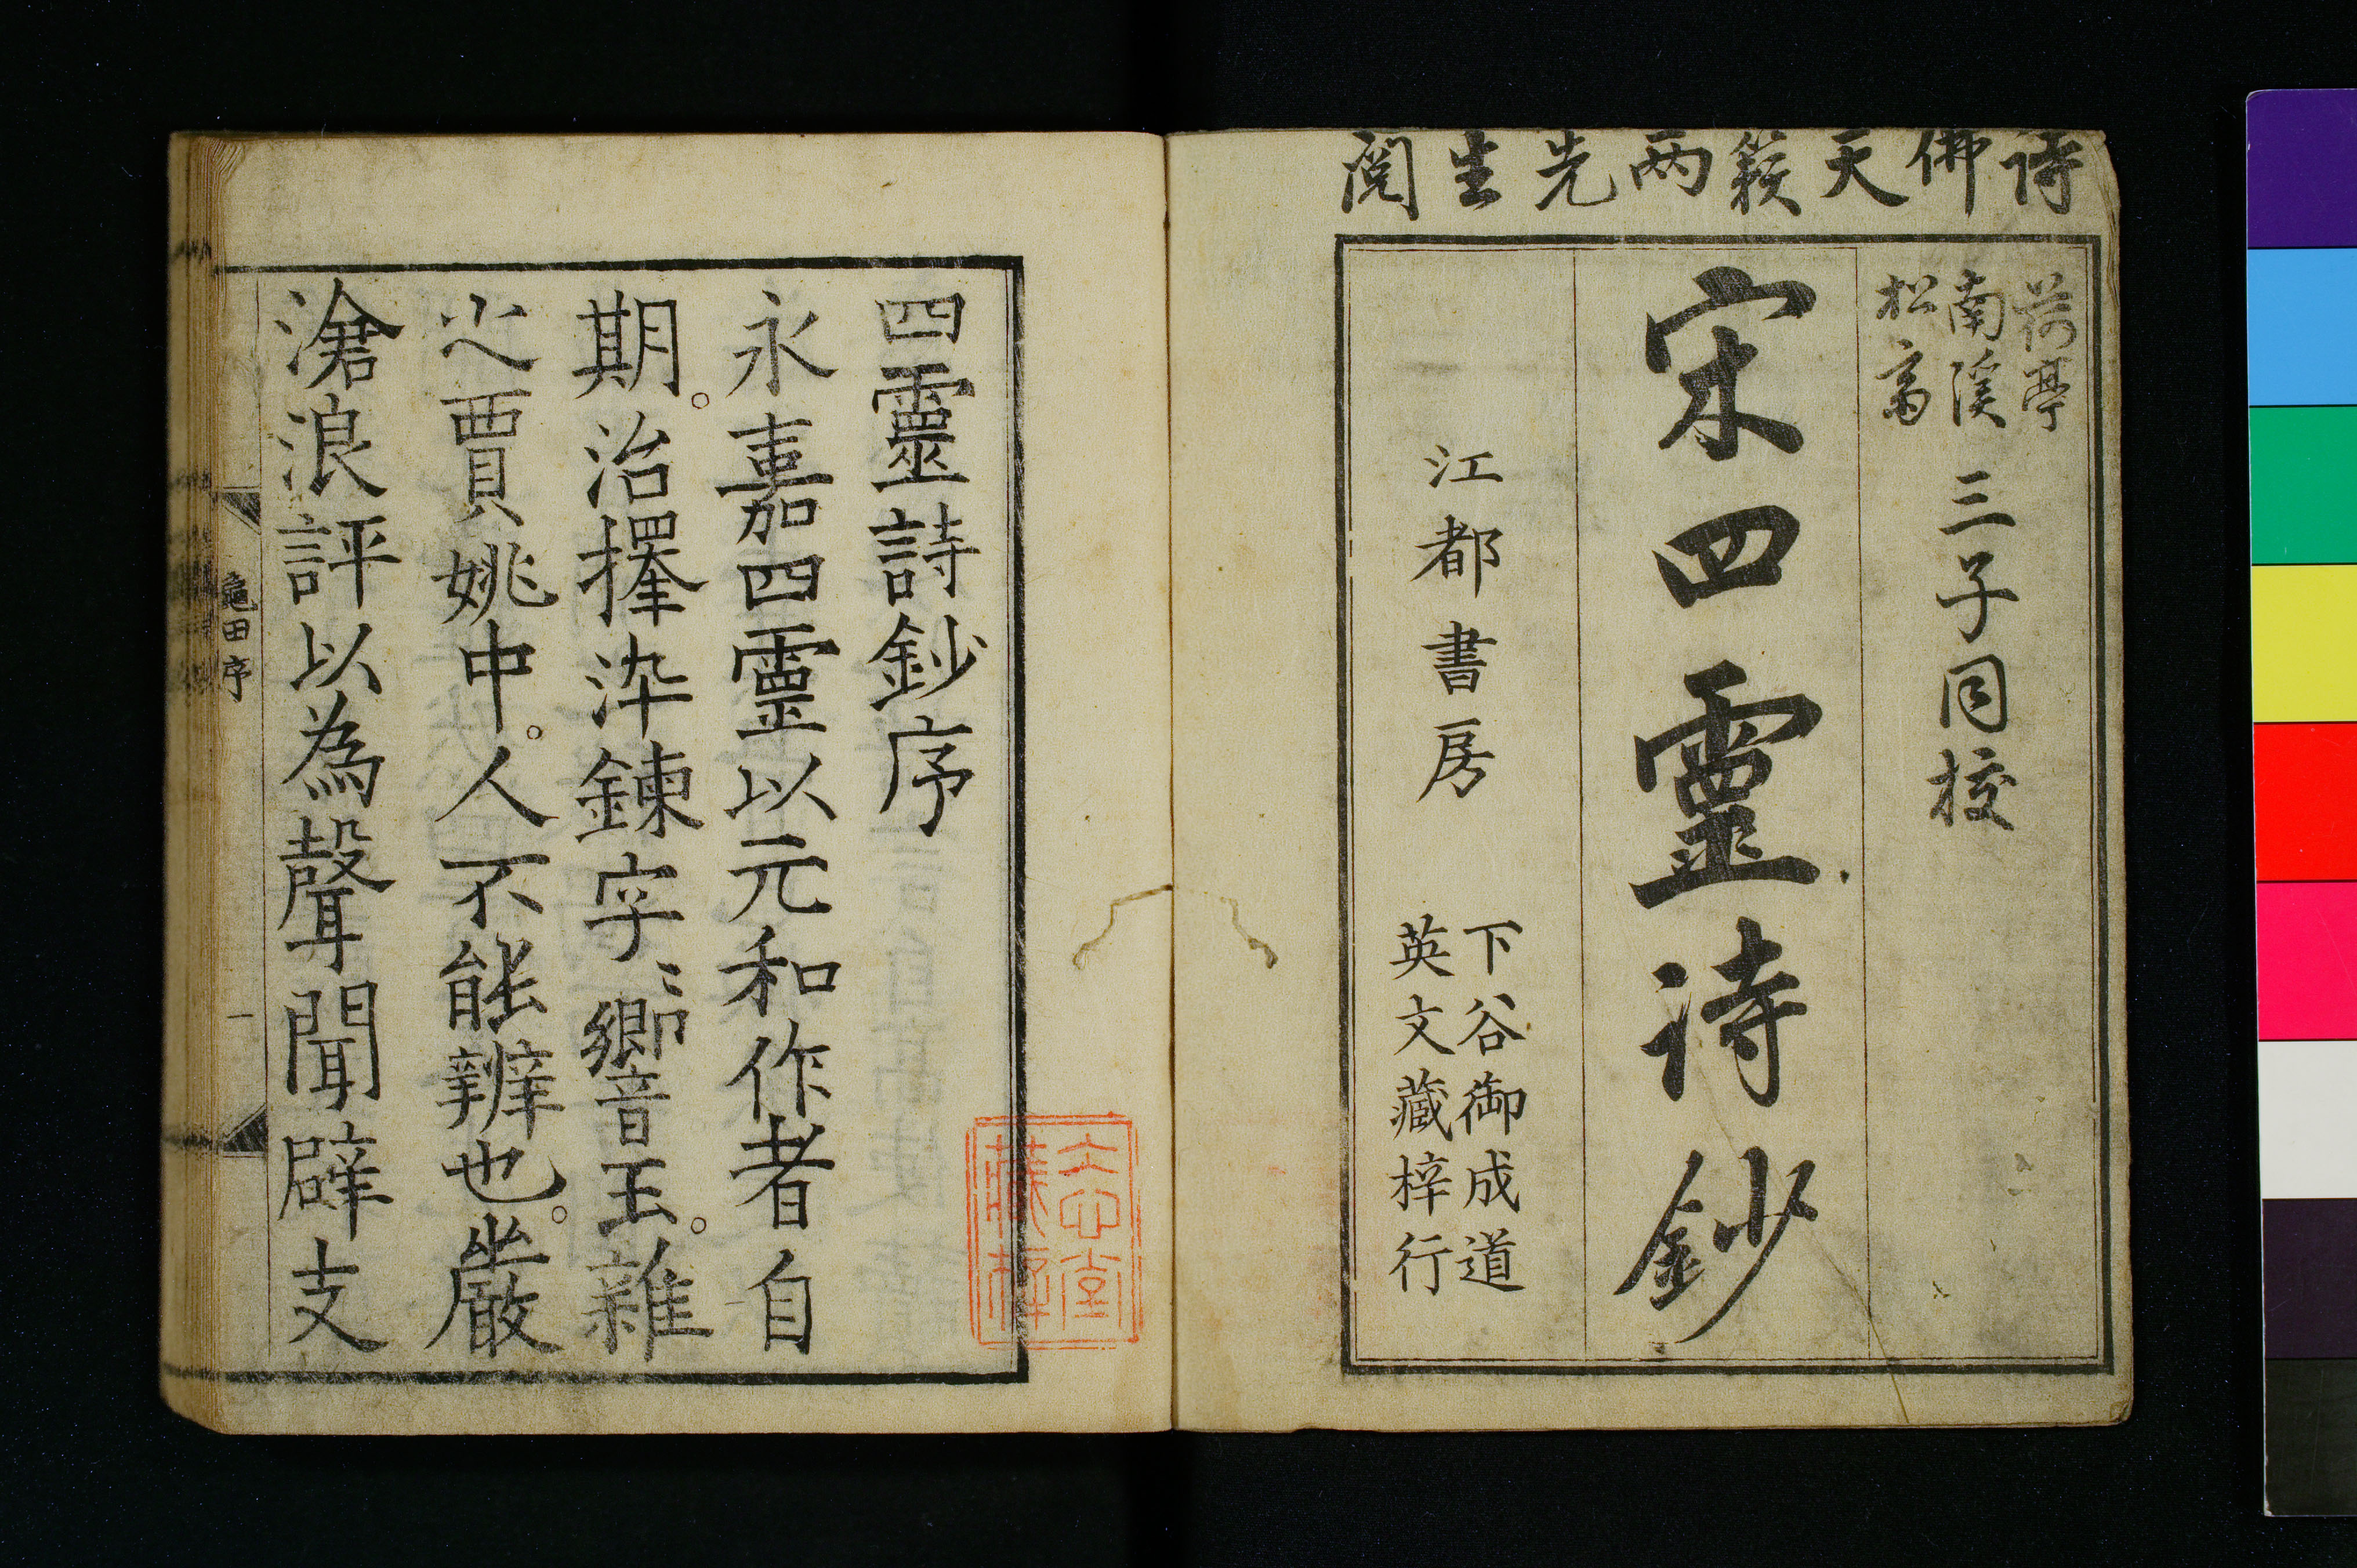 詩佛天籟兩先生閲
荷亭
南溪
松斎
三子同校
宋四靈詩鈔
江都書房
下谷御成道
英文藏梓行
四靈詩鈔序
永嘉四靈以元和作者自
期。治擇淬鍊字〻響玉。雜
之賈姚中。人不能辨也。嚴
滄浪評以為聲聞辟支
龜田序
一